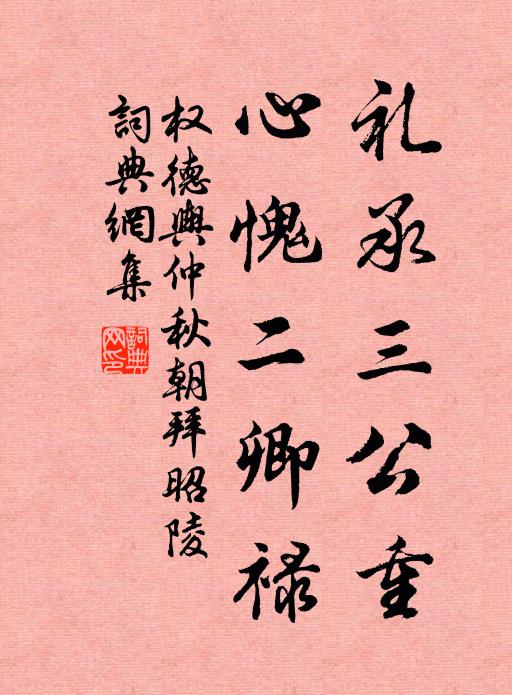 礼承三公重
心愧二卿禄
权德輿仲秋朝拜昭陵
詞典網集
詞典
网印